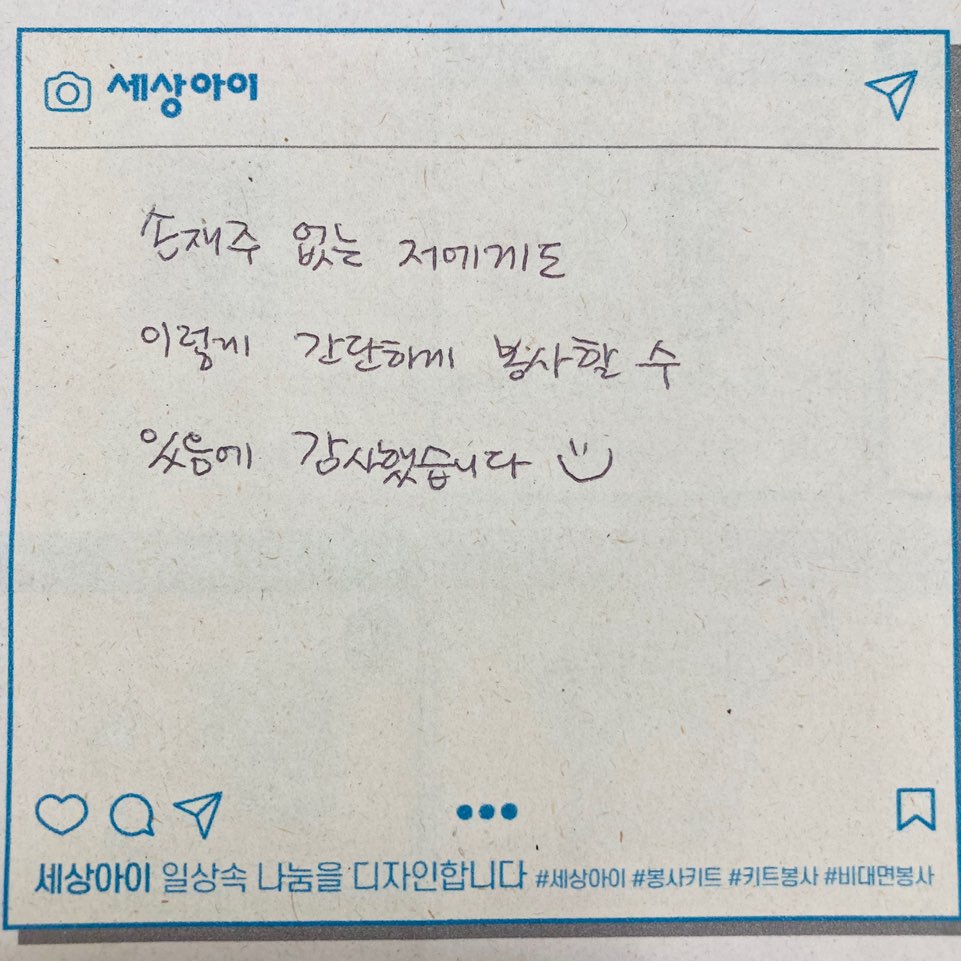 세상아이
손재주 없는 저에게도
이렇게 간단하게 봉사할 수
있음에 감사했습니다
세상아이 일상속 나눔을 디자인합니다 #세상아이 #봉사키트 #키트봉사 #비대면봉사